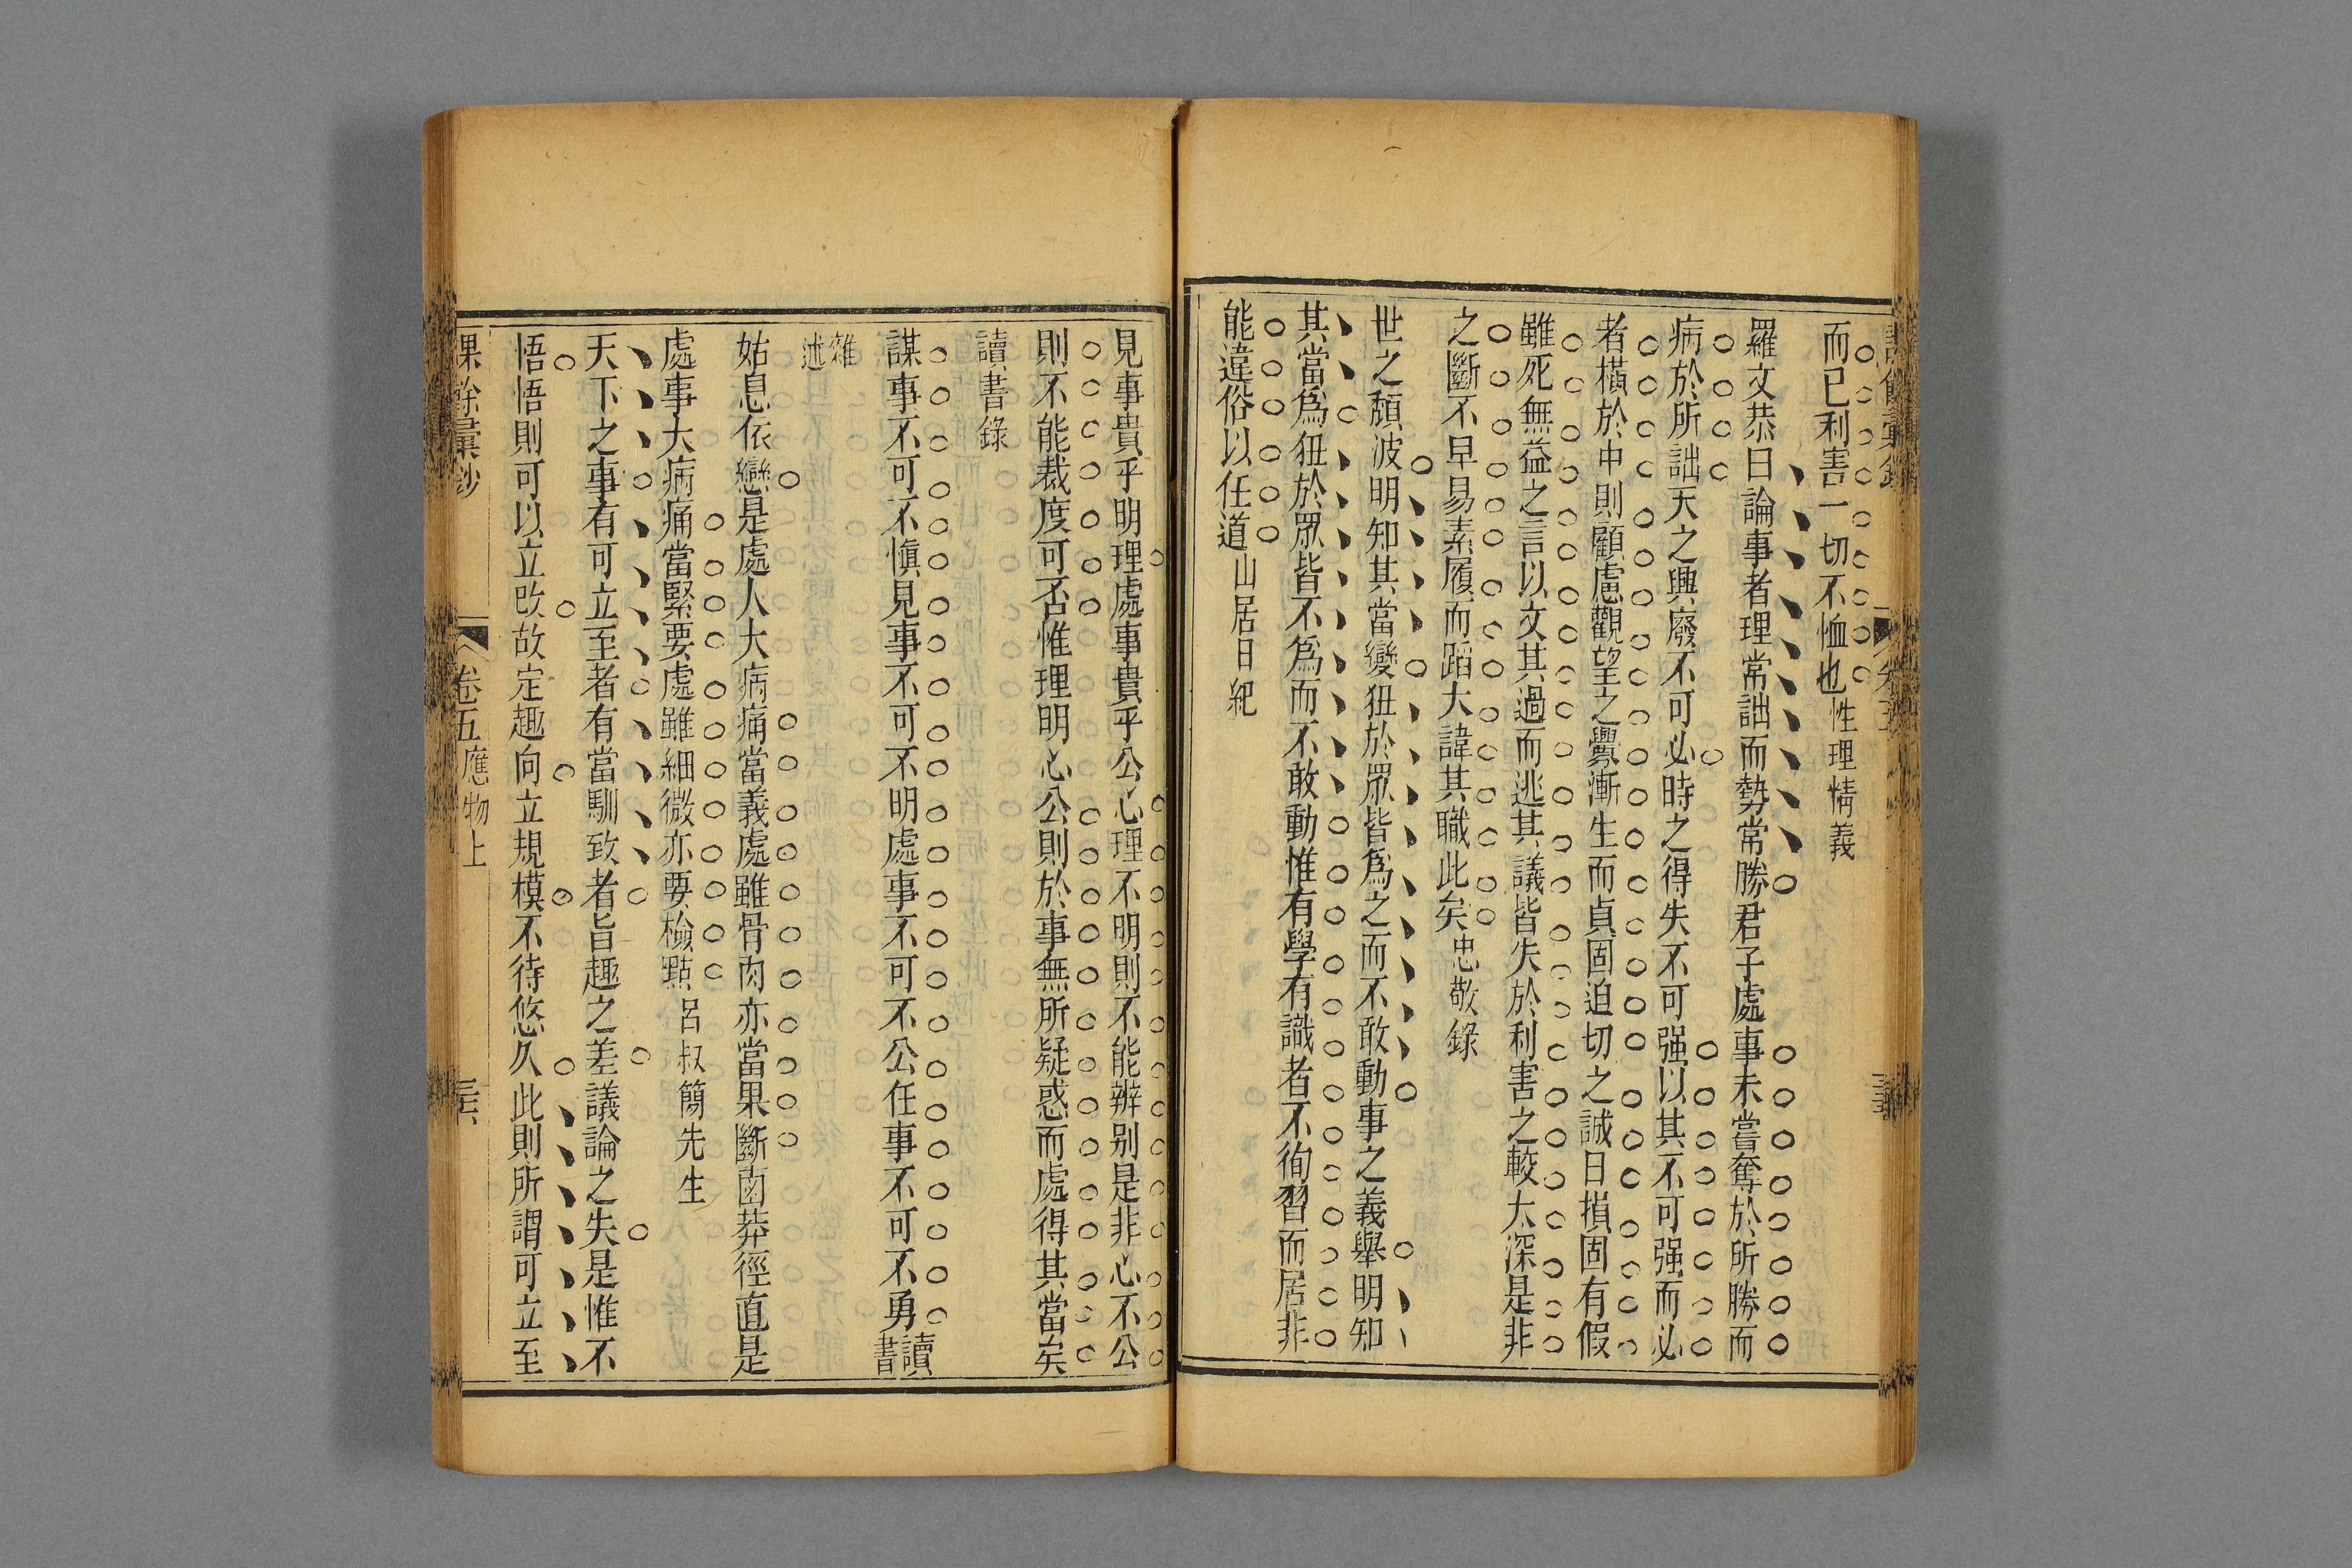 而已利害一切不恤也性理情義
羅文恭曰論事者理常詘而勢常勝君子處事未嘗奪於所勝而
病於所詘天之興廢不可必時之得失不可强以其不可强而必
者橫於中則顧慮觀望之釁漸生而貞固迫切之誠日損固有假
雖死無益之言以文其過而逃其議皆失於利害之較太深是非
之斷不早易素履而蹈大諱其職此矣忠敬錄
世之頹波明知其當變狃於眾皆爲之而不敢動事之義舉明知
其當爲狃於眾皆不爲而不敢動惟有學有識者不徇習而居非
能違俗以任道山居日紀
見事貴乎明理處事貴乎公心理不明則不能辨别是非心不公
則不能裁度可否惟理明心公則於事無所疑惑而處得其當矣
讀書錄
謀事不可不愼見事不可不明處事不可不公任事不可不勇讀書
雜述
姑息依戀是處人大病痛當義處雖骨肉亦當果斷鹵莽徑直是
處事大病痛當緊要處雖細微亦要檢點呂叔簡先生
天下之事有可立至者有當馴致者旨趣之差議論之失是惟不
悟悟則可以立改故定趣向立規模不待悠久此則所謂可立至
課餘彙鈔
卷五應物上